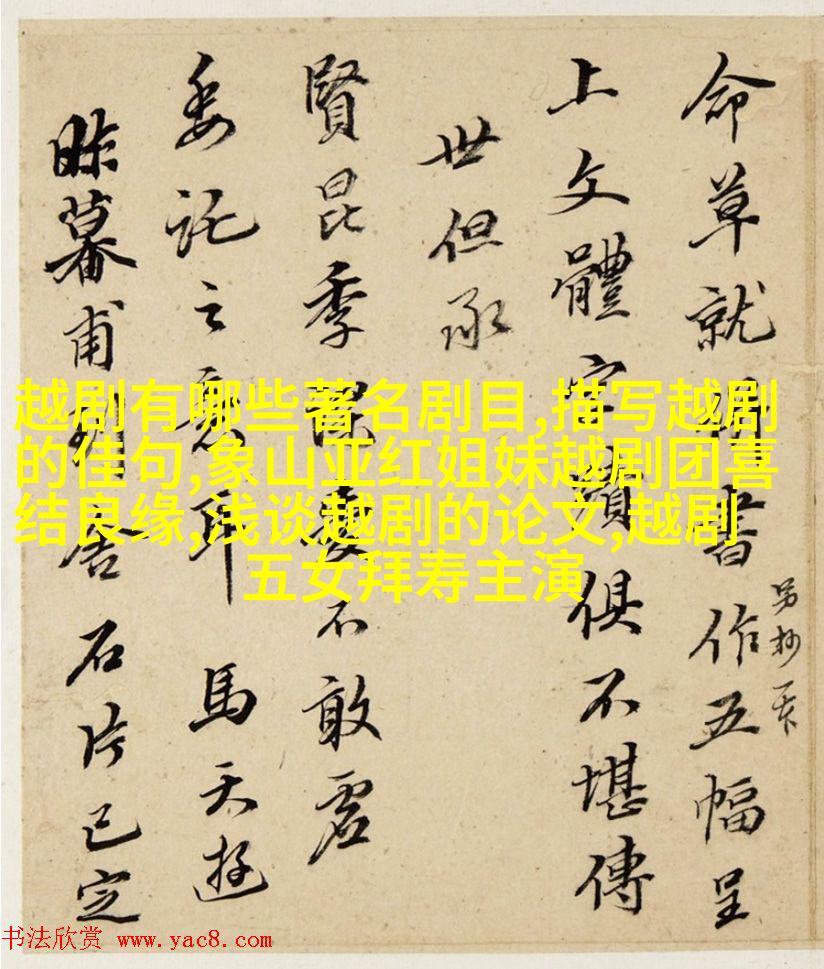 命草就書作五幅呈
另抄一
上文體字蹟俱不堪傳
世但承
賢昆季愛不敢虛
委託之意耳 馬天游
昨暮甫到舍石片已定
越剧有哪些著名剧目,描写越剧
的佳句,象山亚红姐妹越剧团喜
结良缘,浅谈越剧的论文,越剧
五女拜寿主演
书法欣赏 www.yac8.com